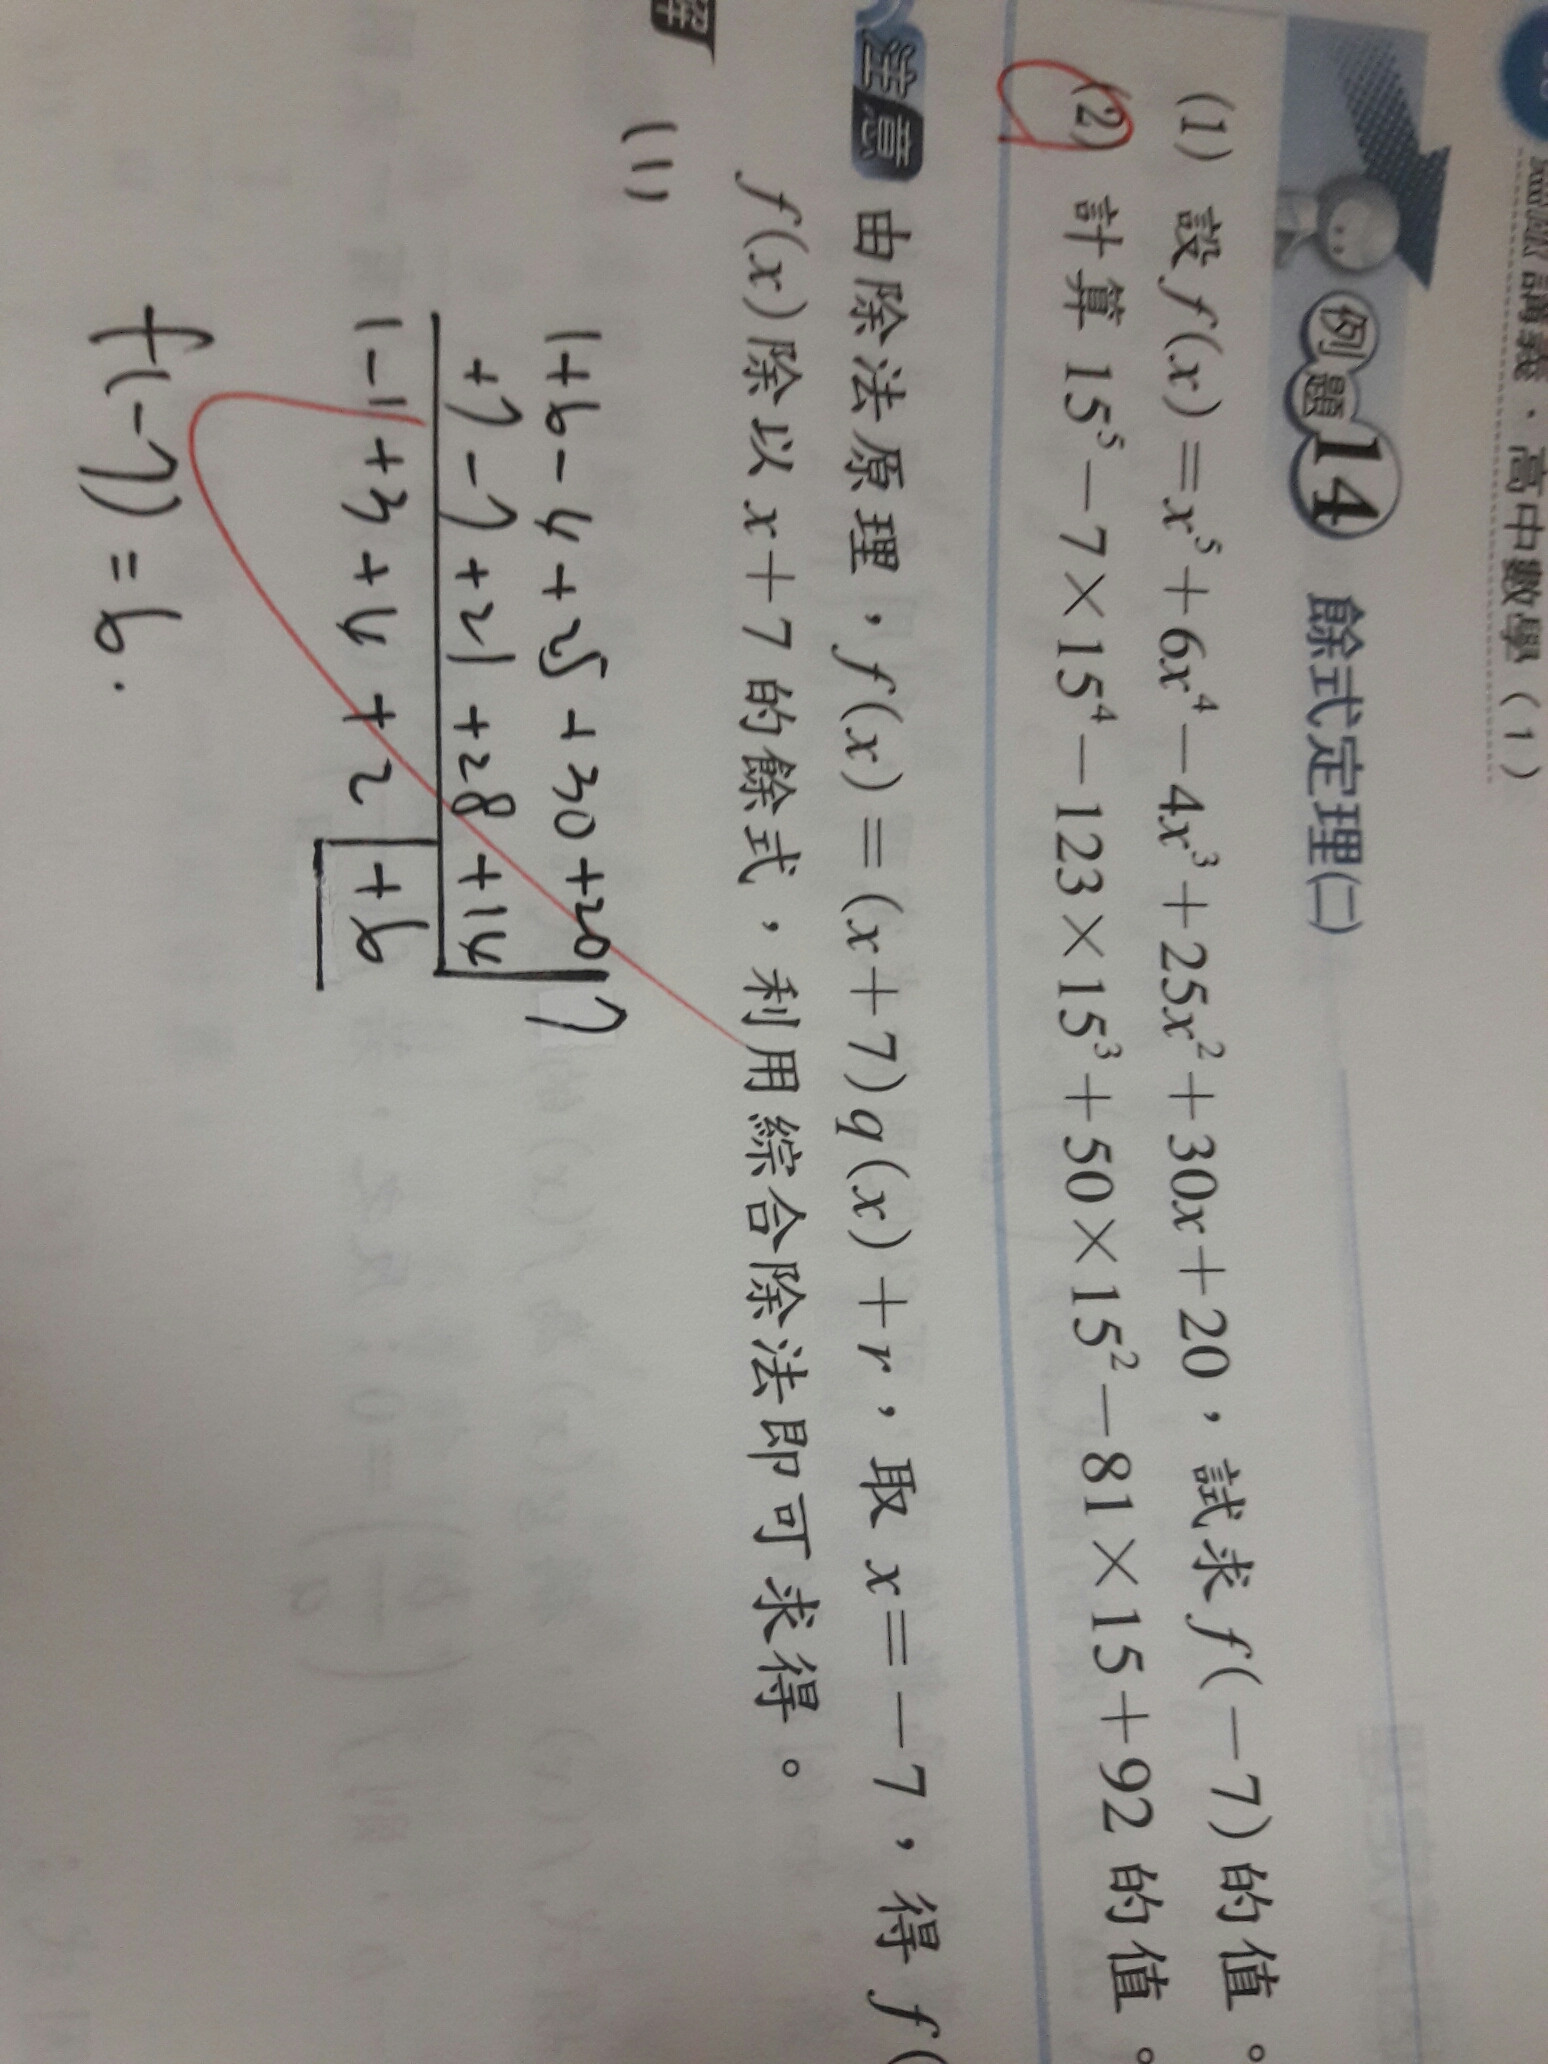 講義．高中數學（1）
例題14 餘式定理(二)
(1) 設 f(x)=x⁵+6x⁴−4x³+25x²+30x+20，試求 f(−7)的值。
(2) 計算 15⁵−7×15⁴−123×15³+50×15²−81×15+92 的值。
注意 由除法原理，f(x)=(x+7)q(x)+r，取 x=−7，得 f(
f(x)除以 x+7 的餘式，利用綜合除法即可求得。
解
(1)
1+6−4+25+30+20 7
+7−7+21+28+14
1−1+3+4+2+6
f(−7)=6.